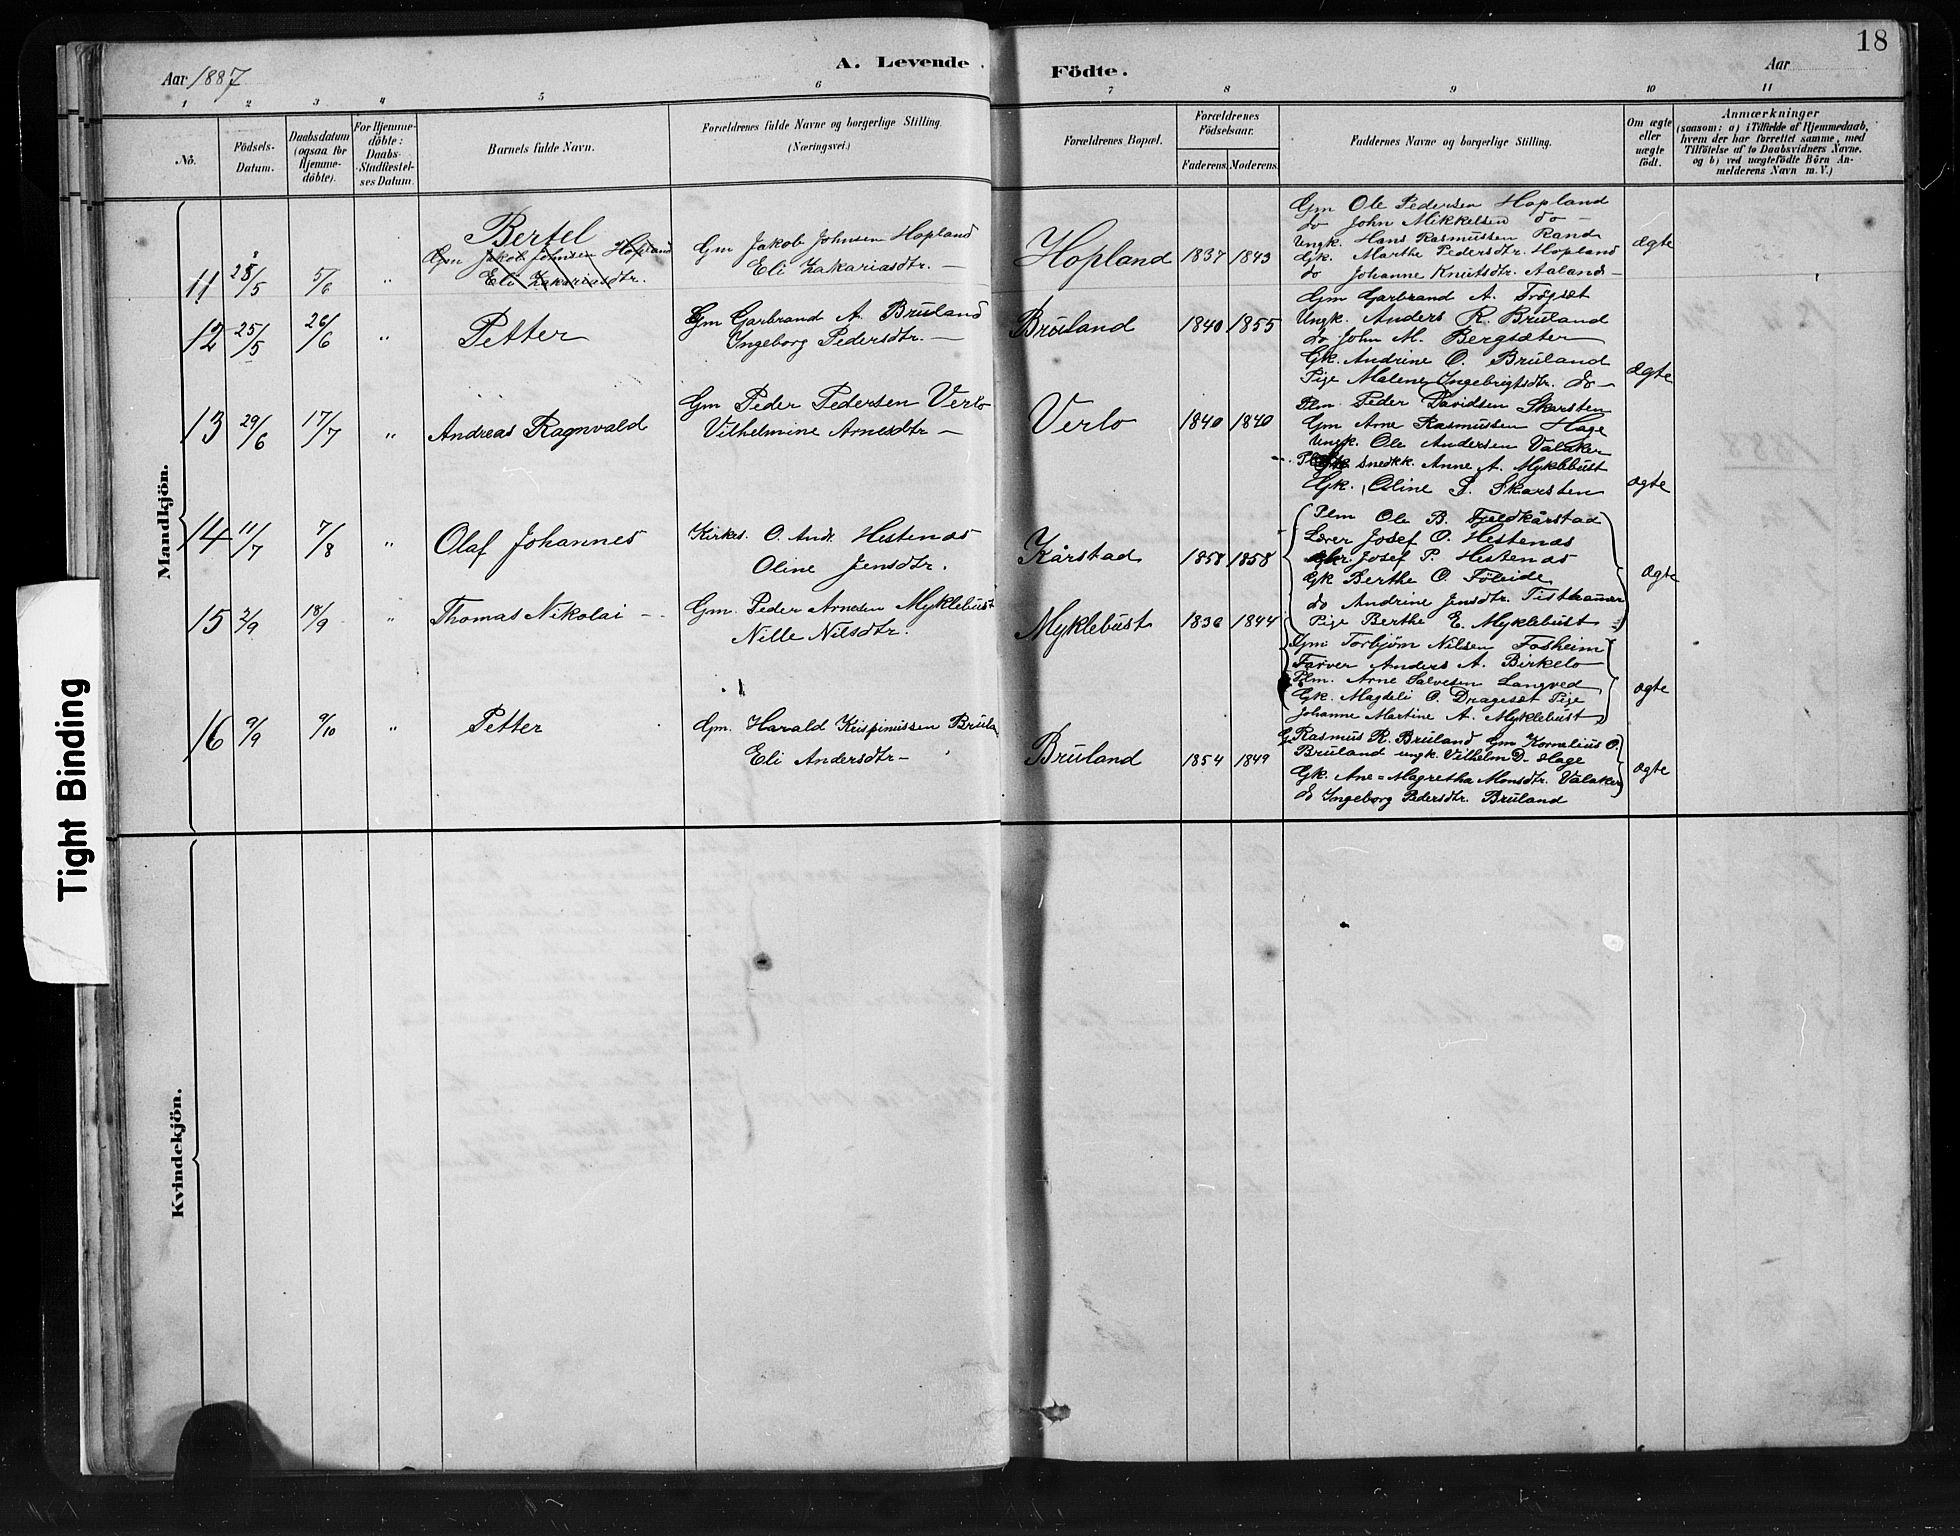 18
Aar 1887
A. Levende
Födte.
Aar
1 2 3 4 5 6 7 8 9 10 11
No.
Födsels-
Datum.
Daabsdatum
(ogsaa for
Hjemme-
döbte).
For Hjemme-
döbte:
Daabs-
Stadfestel-
ses Datum.
Barnets fulde Navn.
Forældrenes fulde Navne og borgerlige Stilling.
(Næringsvei.)
Forældrenes Bopæl.
Forældrenes
Födselsaar.
Faderens. Moderens.
Faddernes Navne og borgerlige Stilling.
Om ægte
eller
uægte
födt.
Anmærkninger
(saasom: a) i Tilfælde af Hjemmedaab,
hvem der har forrettet samme, med
Tilföielse af to Daabsvidners Navne.
og b) ved uægtefödte Börn An-
melderens Navn m. V.)
Mandkjön.
11 28/5 5/6 "
Bertel
Gm Jakob Johnsen Hopland
Eli Zakariasdtr.
Gm Jakob Johnsen Hopland
Eli Zakariasdtr. —
Hopland 1837 1843
Gm Ole Pedersen Hopland
do John Mikkelsen do —
Ungk. Hans Rasmussen Rand
Gk. Marthe Pedersdtr. Hopland
do Johanne Knutsdtr. Aaland —
ægte
12 25/5 26/6 "
Petter
Gm Garbrand A. Bruland
Ingeborg Pedersdtr. —
Bruland 1840 1855
Gm Garbrand A. Trögset
Ungk. Anders R. Bruland
do John M. Bergsæter
Gk. Andrine O. Bruland
Pige Malene Ingebrigtsdtr. do —
ægte
13 29/6 17/7 "
Andreas Ragnvald
Gm Peder Pedersen Verlo
Vilhelmine Arnesdtr —
Verlo 1840 1840
Plm Peder Davidsen Skarsten
Gm Arne Rasmussen Hage
Ungk. Ole Andersen Valaker
Snedkk. Anne A. Myklebust
Gk. Oline P. Skarsten
ægte
14 11/7 7/8 "
Olaf Johannes
Kirkes. O. And. Hestenes
Oline Jensdtr.
Kårstad 1858 1858
Plm Ole B. Fjeldkårstad
Lærer Josef O. Hestenes
Josef P. Hestenes
Gk Berthe O. Föleide
do Andrine Jensdtr. Tistkammer
Pige Berthe E. Myklebust
ægte
15 2/9 18/9 "
Thomas Nikolai —
Gm. Peder Arnesen Myklebust
Nille Nilsdtr.
Myklebust 1836 1844
Gm. Torbjørn Nilsen Fosheim
Farver Anders A. Birkelo
Plm. Arne Salvesen Langved
Gk. Magdeli O. Drageset Pige
Johanne Martine A. Myklebust
ægte
16 9/9 9/10 "
Petter
Gm. Harald Krispinussen Brula
Eli Andersdtr —
Bruland 1854 1849
G Rasmus R. Bruland Gm Kornelius O.
Bruland ungk. Vilhelm D. Hage
Gk. Ane = Magretha Monsdtr. Valaker
do Ingeborg Pedersdtr. Bruland
ægte
Kvindekjön.
Tight Binding